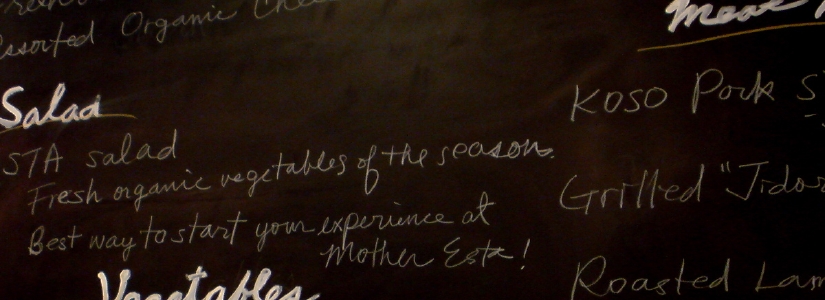 Assorted Organic
Salad
STA salad
Fresh organic vegetables of the season.
Best way to start your experience at
Mother Esta!
Vegetables
Meat
Koso Pork S
Grilled "Jidor
Roasted Lam